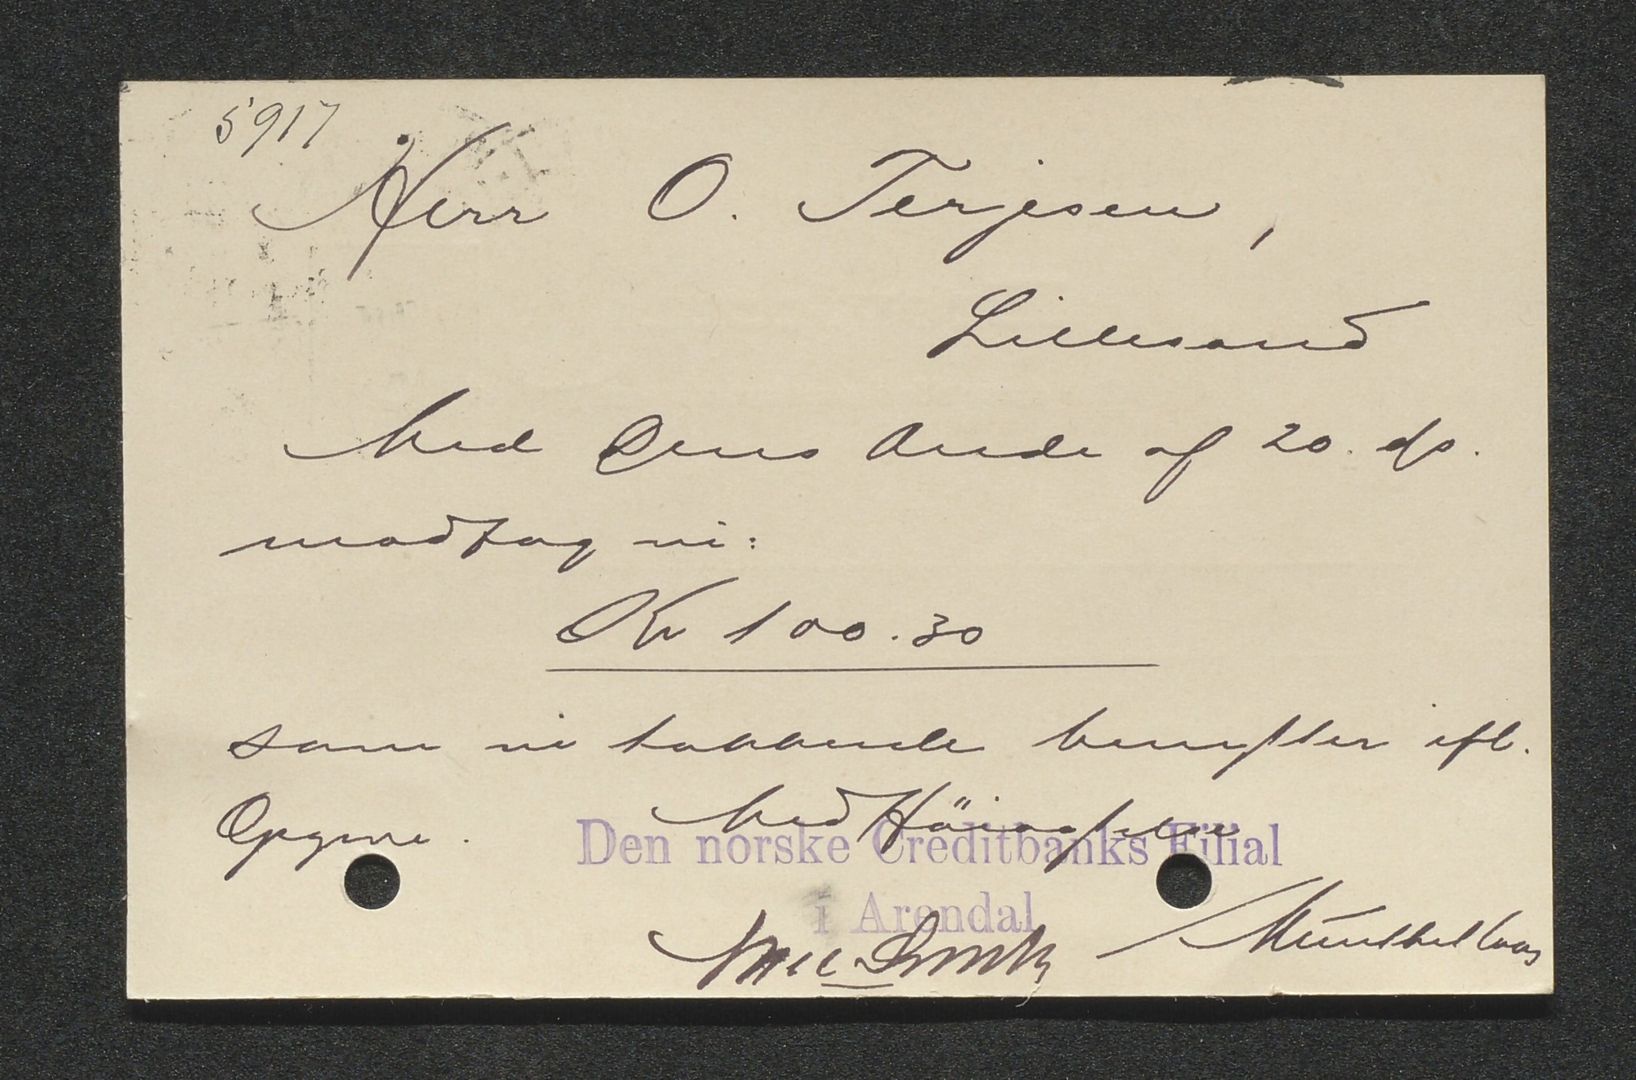 5917
Herr O. Terjesen,
Lillesand
Med Deres Ærede af 20. ds.
modtog vi:
Kr 100.30
som vi takkende benytter ifl.
Opgave.
Med Høiagtelse
Den norske Creditbanks Filial
i Arendal